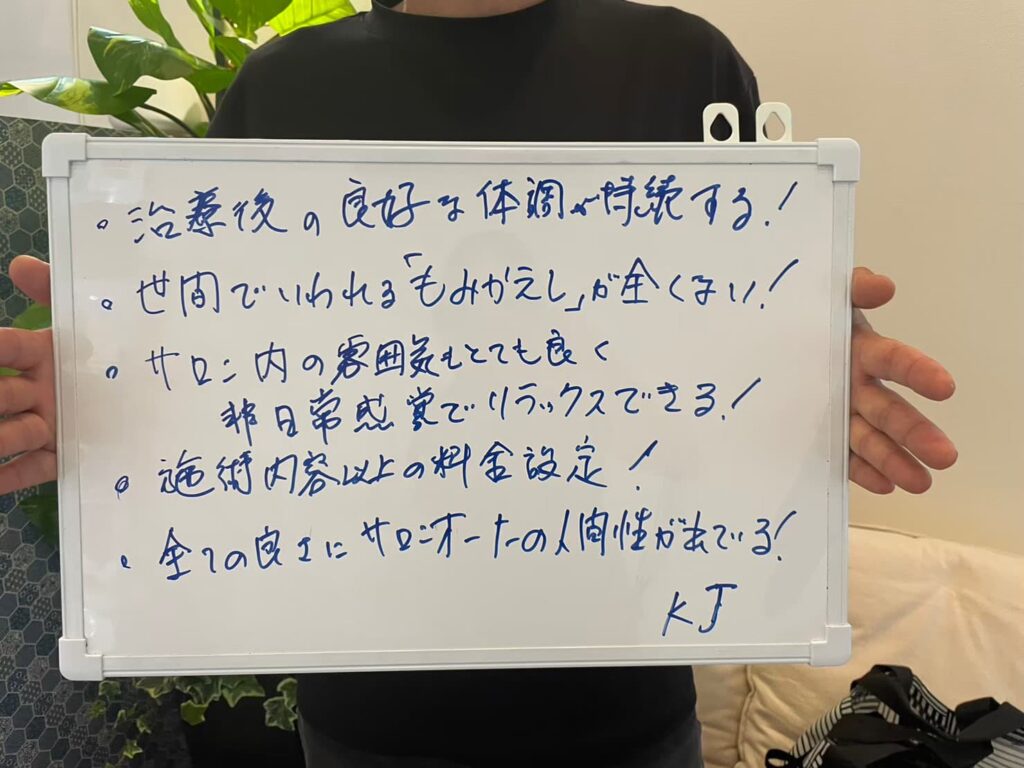 。治療後の良好な体調が持続する!
。世間でいわれる「もみかえし」が全くない!
。サロン内の雰囲気もとても良く
非日常感覚でリラックスできる!
。施術内容以上の料金設定!
。全ての良さにサロンオーナーの人間性が出ている!
KJ